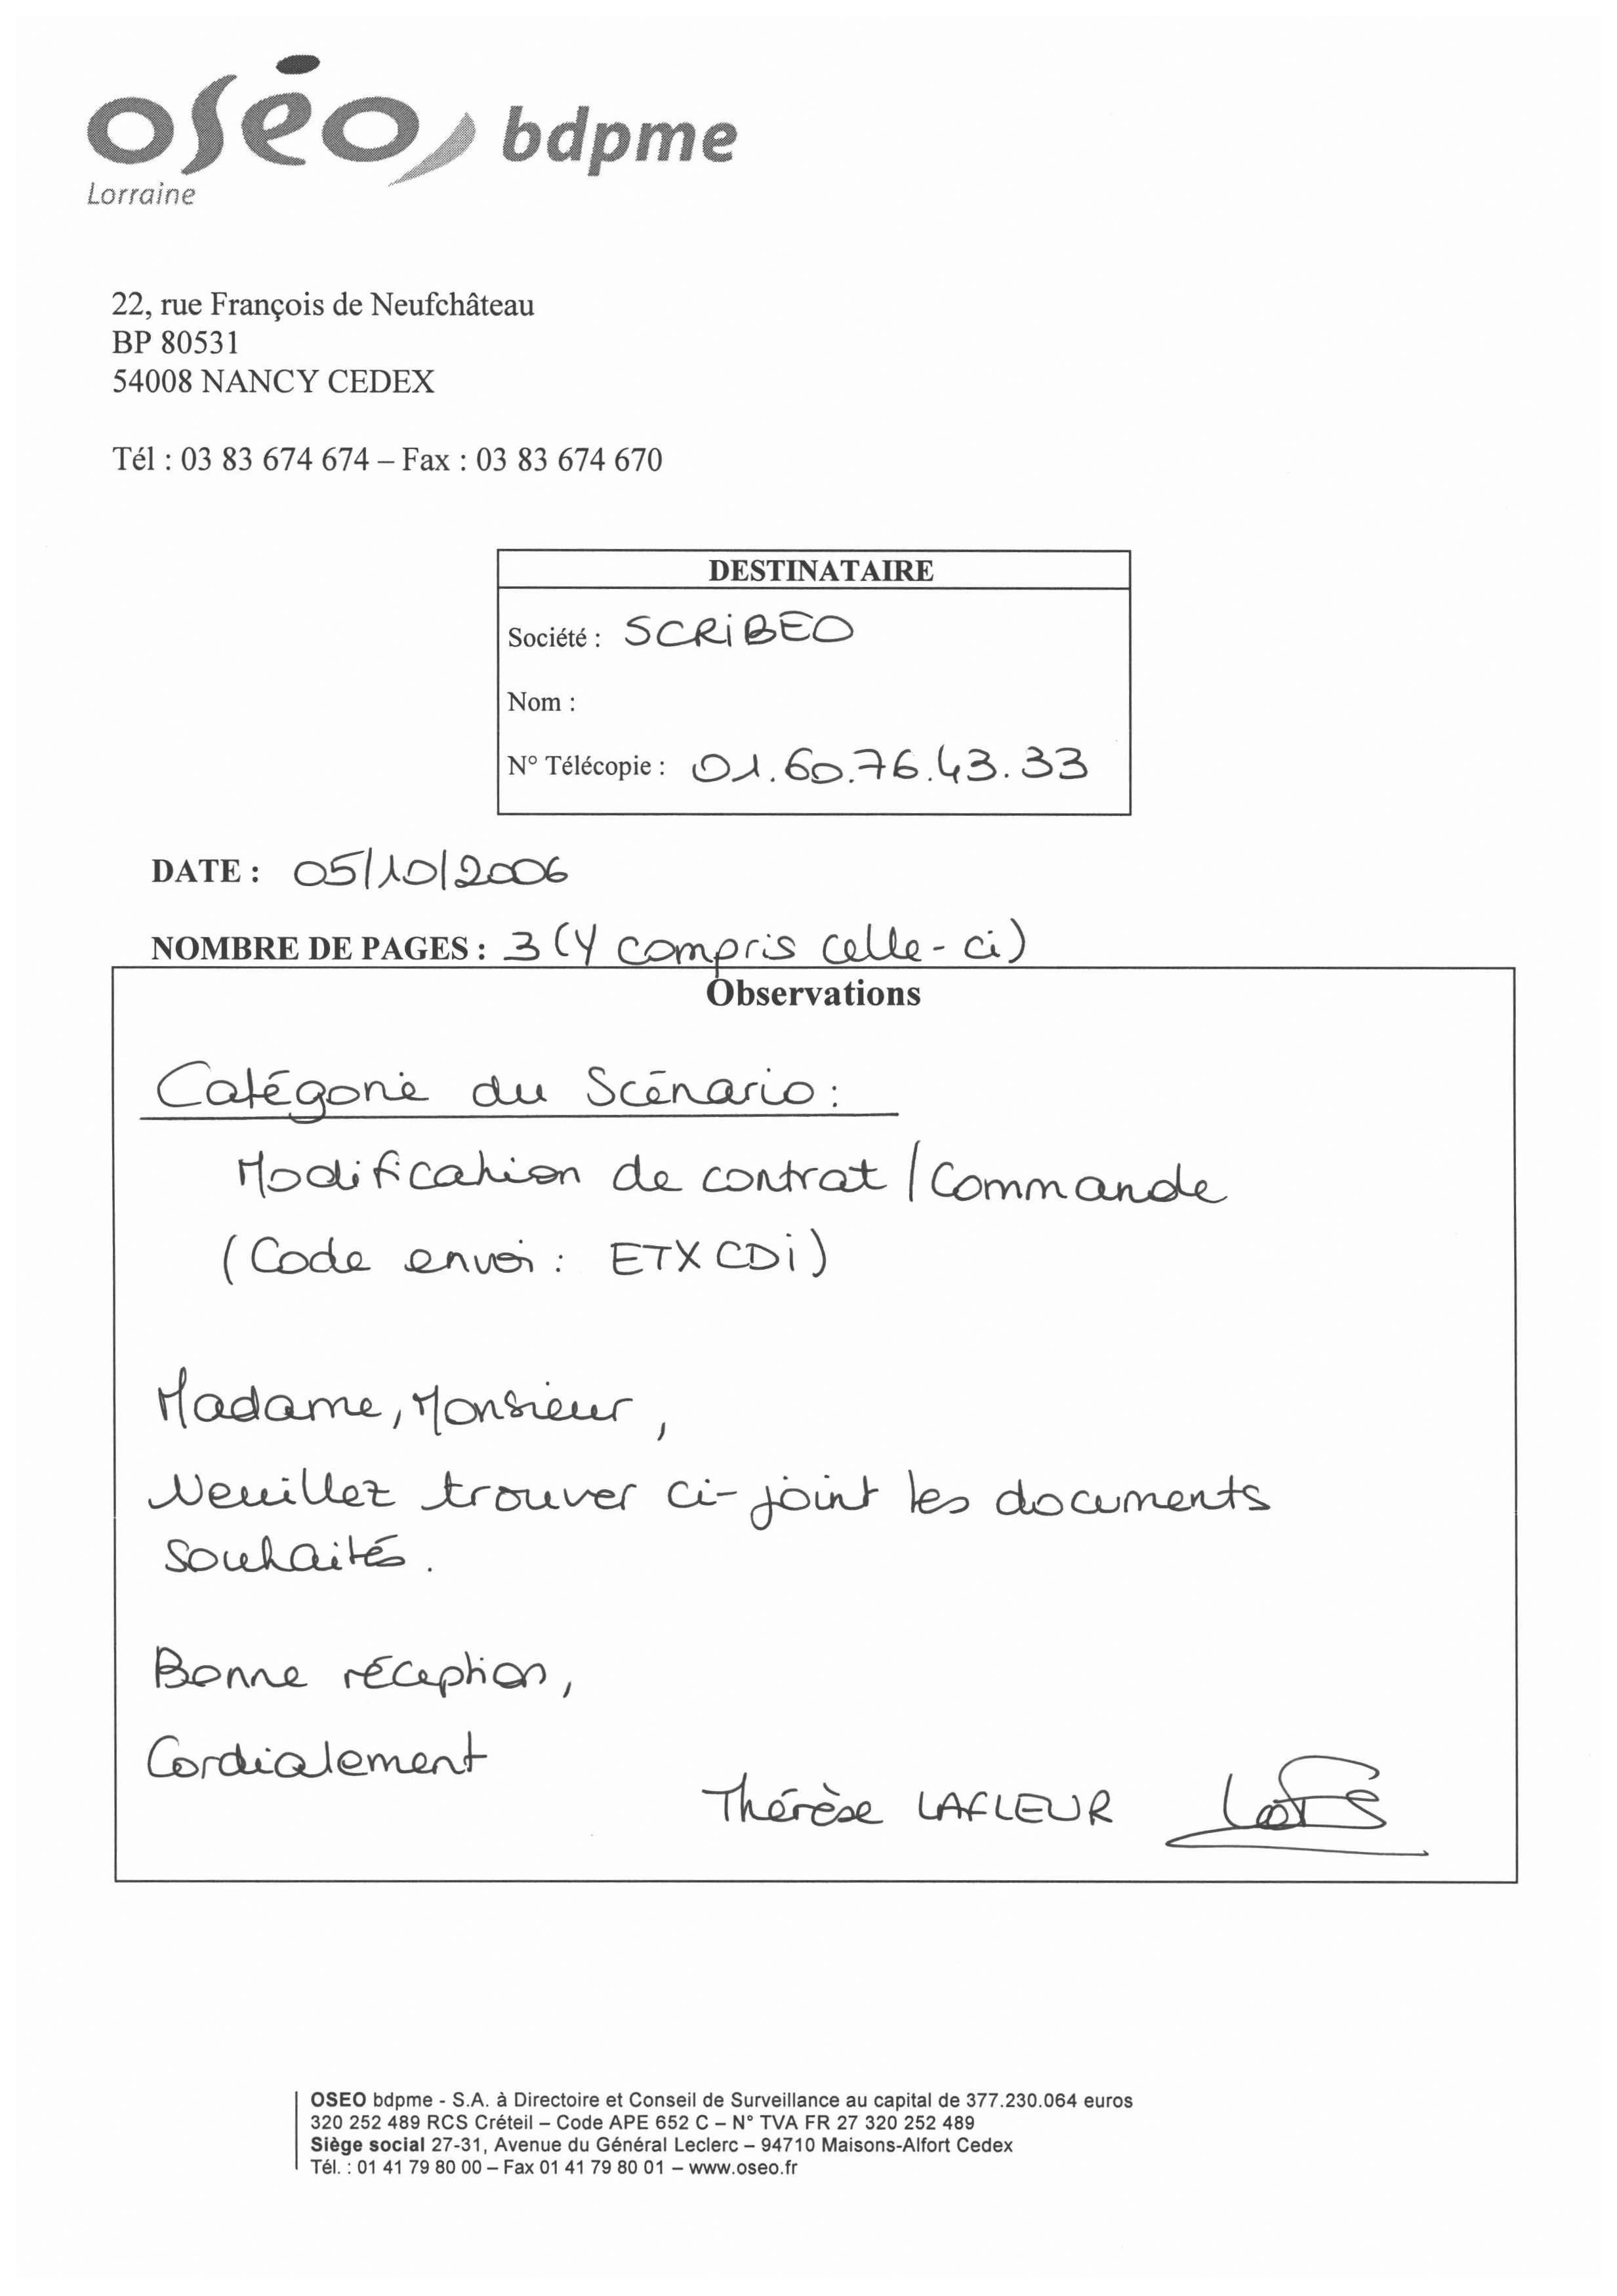 oséo bdpme
Lorraine
22, rue François de Neufchâteau
BP 80531
54008 NANCY CEDEX
Tél : 03 83 674 674 – Fax : 03 83 674 670
DESTINATAIRE
Société : SCRIBEO
Nom :
N° Télécopie : 01.60.76.43.33
DATE : 05/10/2006
NOMBRE DE PAGES : 3 (Y compris celle-ci)
Observations
Catégorie du Scénario :
Modification de contrat / Commande
(Code envoi : ETXCDi)
Madame, Monsieur,
Veuillez trouver ci-joint les documents
souhaités.
Bonne réception,
Cordialement
Thérèse LAFLEUR
OSEO bdpme - S.A. à Directoire et Conseil de Surveillance au capital de 377.230.064 euros
320 252 489 RCS Créteil – Code APE 652 C – N° TVA FR 27 320 252 489
Siège social 27-31, Avenue du Général Leclerc – 94710 Maisons-Alfort Cedex
Tél. : 01 41 79 80 00 – Fax 01 41 79 80 01 – www.oseo.fr